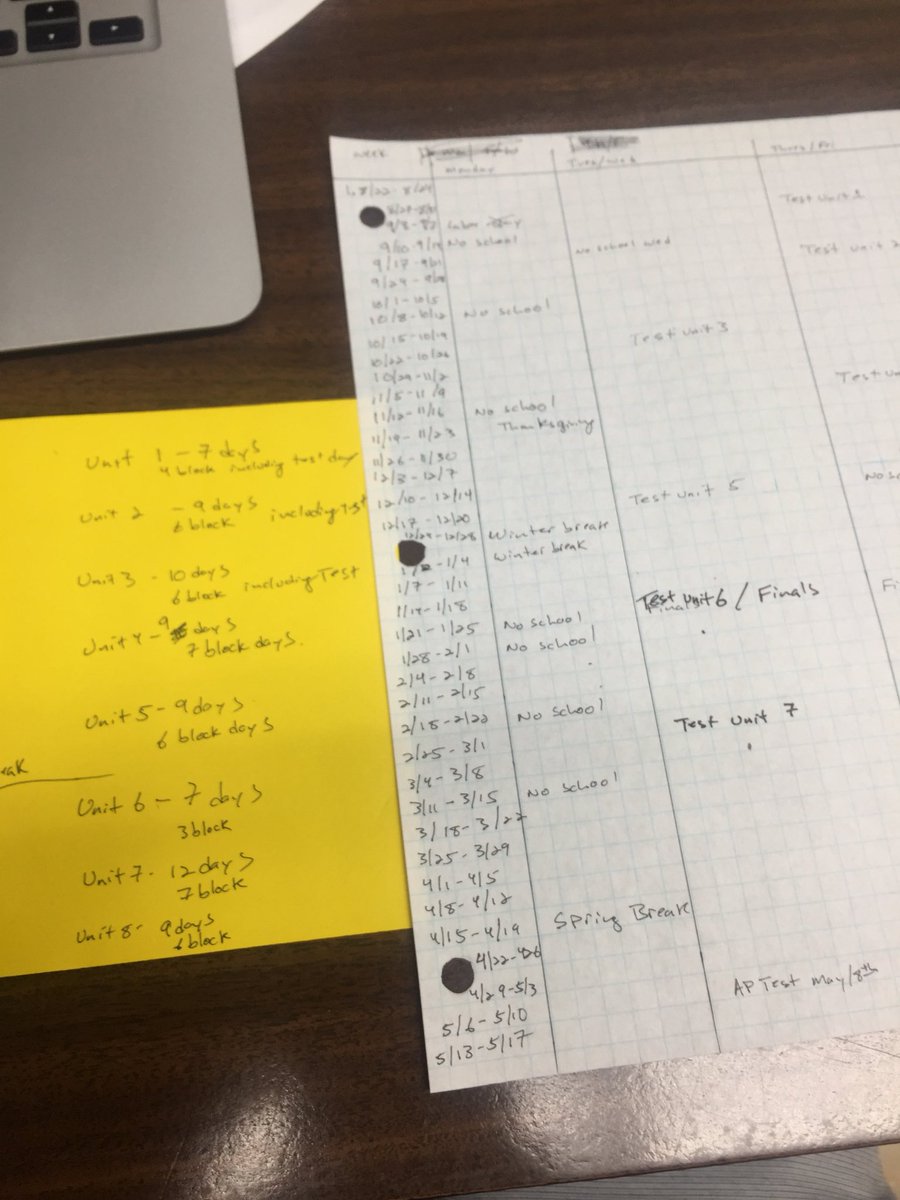 Unit 1 - 7 days
4 block including test day
Unit 2 - 9 days
6 block including test
Unit 3 - 10 days
6 block including Test
Unit 4 - 9 days
7 block days.
Unit 5 - 9 days
6 block days
eak
Unit 6 - 7 days
3 block
Unit 7 - 12 days
7 block
Unit 8 - 9 days
6 block
week Monday Tues/Wed Thurs/Fri
1, 8/22 - 8/24
Test Unit 1
Labor Day
9/10 - 9/14 No school No school Wed Test Unit 2
9/17 - 9/21
9/24 - 9/28
10/1 - 10/5
10/8 - 10/12 No school
10/15 - 10/19 Test Unit 3
10/22 - 10/26
10/29 - 11/2
11/5 - 11/9 Test Un
11/12 - 11/16 No school
11/19 - 11/23 Thanksgiving
11/26 - 11/30
12/3 - 12/7
12/10 - 12/14 Test Unit 5 No S
12/17 - 12/20
12/24 - 12/28 Winter break
- 1/4 Winter break
1/7 - 1/11
1/14 - 1/18 Test Unit 6 / Finals Fi
1/21 - 1/25 No school
1/28 - 2/1 No school
2/4 - 2/8
2/11 - 2/15
2/18 - 2/22 No School Test Unit 7
2/25 - 3/1
3/4 - 3/8
3/11 - 3/15 No school
3/18 - 3/22
3/25 - 3/29
4/1 - 4/5
4/8 - 4/12
4/15 - 4/19 Spring Break
4/22 - 4/26
4/29 - 5/3 AP Test May/8th
5/6 - 5/10
5/13 - 5/17